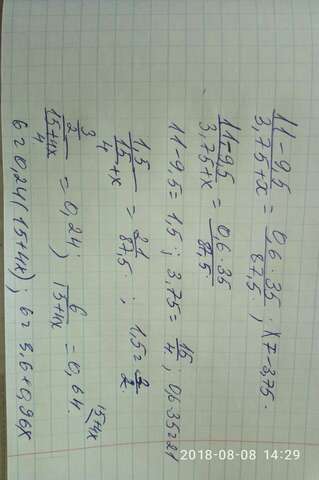 11-9,5 / 3,75+x = 0,6·35 / 87,5 ; x≠-3,75.
11-9,5 / 3,75+x = 0,6·35 / 87,5
11-9,5=1,5 ; 3,75= 15/4 ; 0,6·35=21
1,5 / 15/4 +x = 21 / 87,5 ; 1,5= 3/2
3/2 / 15+4x / 4 = 0,24 ; 6 / 15+4x = 0,64. 15+4x
6=0,24(15+4x) ; 6=3,6+0,96x
2018-08-08 14:29